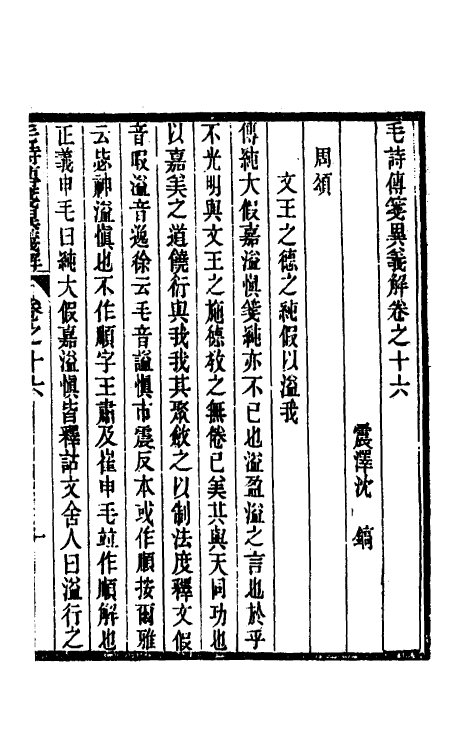 毛詩傳箋異義解卷之十六
震澤沈鎬
周頌
文王之德之純假以溢我
傳純大假嘉溢愼箋純亦不已也溢盈溢之言也於乎
不光明與文王之施德敎之無倦已美其與天同功也
以嘉美之道饒衍與我我其聚斂之以制法度釋文假
音暇溢音逸徐云毛音謚愼市震反本或作順按爾雅
云毖神溢愼也不作順字王肅及崔申毛並作順解也
正義申毛曰純大假嘉溢愼皆釋詁文舍人曰溢行之
毛詩傳箋異義解 卷之十六